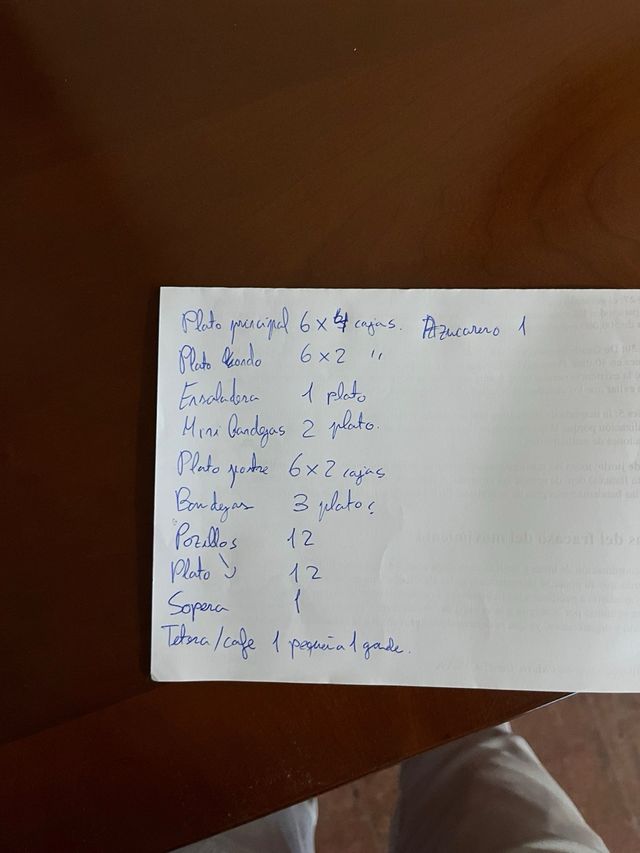 Plato principal 6 x 4 cajas. Azucarero 1
Plato hondo 6 x 2 "
Ensaladera 1 plato
Mini bandejas 2 plato.
Plato postre 6 x 2 cajas
Bandejas 3 platos
Pozillos 12
Plato " 12
Sopera 1
Tetera/cafe 1 pequeña 1 grande.